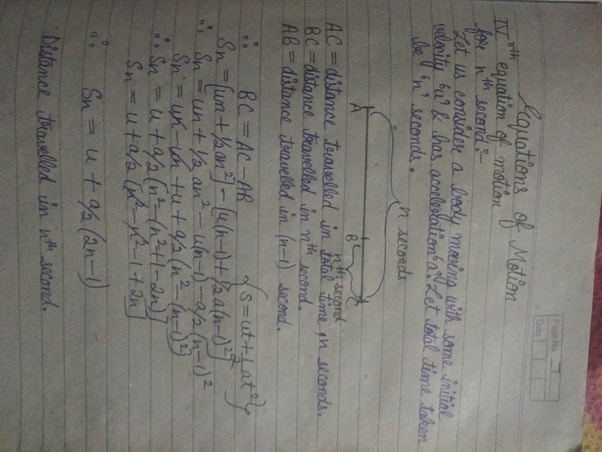 Page No. 7
Date
Equations of Motion
IVth equation of motion
for nth second:-
Let us consider a body moving with some initial
velocity 'u' & has acceleration 'a'. Let total time taken
be 'n' seconds.
n seconds
nth second
A B C
AC = distance travelled in total time, n seconds.
BC = distance travelled in nth second.
AB = distance travelled in (n-1) second.
∵ BC = AC - AB {S = ut + 1/2 at²}
Sn = [un + 1/2 an²] - [u(n-1) + 1/2 a(n-1)²]
Sn = un + 1/2 an² - u(n-1) - a/2 (n-1)²
Sn = un - un + u + a/2 (n² - (n-1)²)
∵ Sn = u + a/2 [n² - (n² + 1 - 2n)]
Sn = u + a/2 [n² - n² - 1 + 2n]
∴ Sn = u + a/2 (2n-1)
Distance travelled in nth second.